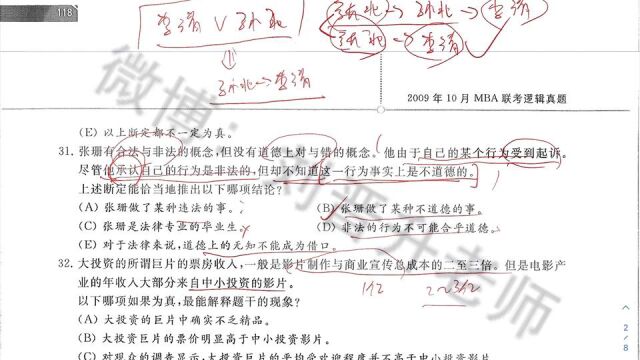 118
李清 ∨ 孙北
孙北→李清
2009 年 10 月 MBA 联考逻辑真题
(E) 以上断定都不一定为真。
31. 张珊有合法与非法的概念,但没有道德上对与错的概念。他由于自己的某个行为受到起诉。
尽管他承认自己的行为是非法的,但却不知道这一行为事实上是不道德的。
上述断定能恰当地推出以下哪项结论?
(A) 张珊做了某种违法的事。
(B) 张珊做了某种不道德的事。
(C) 张珊是法律专业的毕业生。
(D) 非法的行为不可能合乎道德。
(E) 对于法律来说,道德上的无知不能成为借口。
32. 大投资的所谓巨片的票房收入,一般是影片制作与商业宣传总成本的二至三倍。但是电影产
业的年收入大部分来自中小投资的影片。
1亿
2~3亿
以下哪项如果为真,最能解释题干的现象?
(A) 大投资的巨片中确实不乏精品。
(B) 大投资的巨片的票价明显高于中小投资影片。
(C) 对观众的调查显示,大投资巨片的平均受欢迎程度并不高于中小投资影片。
2/8